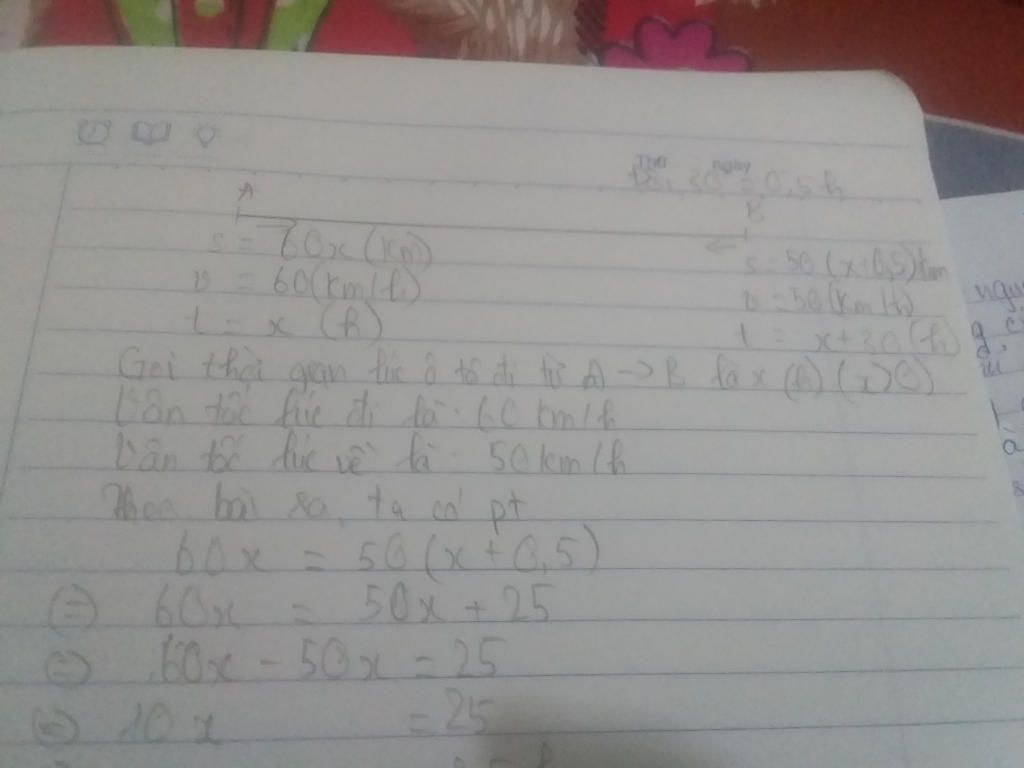 Thứ ngày
30' = 0,5 h
A B
s = 60x (km) s = 50 (x+0,5) km
v = 60 (km/h) v = 50 (km/h)
t = x (h) t = x+30 (h)
Gọi thời gian lúc ô tô đi từ A → B là x (h) (x>0)
Vân tốc lúc đi là: 60 km/h
Vân tốc lúc về là: 50 km/h
Theo bài ra, ta có pt
60x = 50 (x+0,5)
(=) 60x = 50x + 25
(=) 60x - 50x = 25
(=) 10x = 25